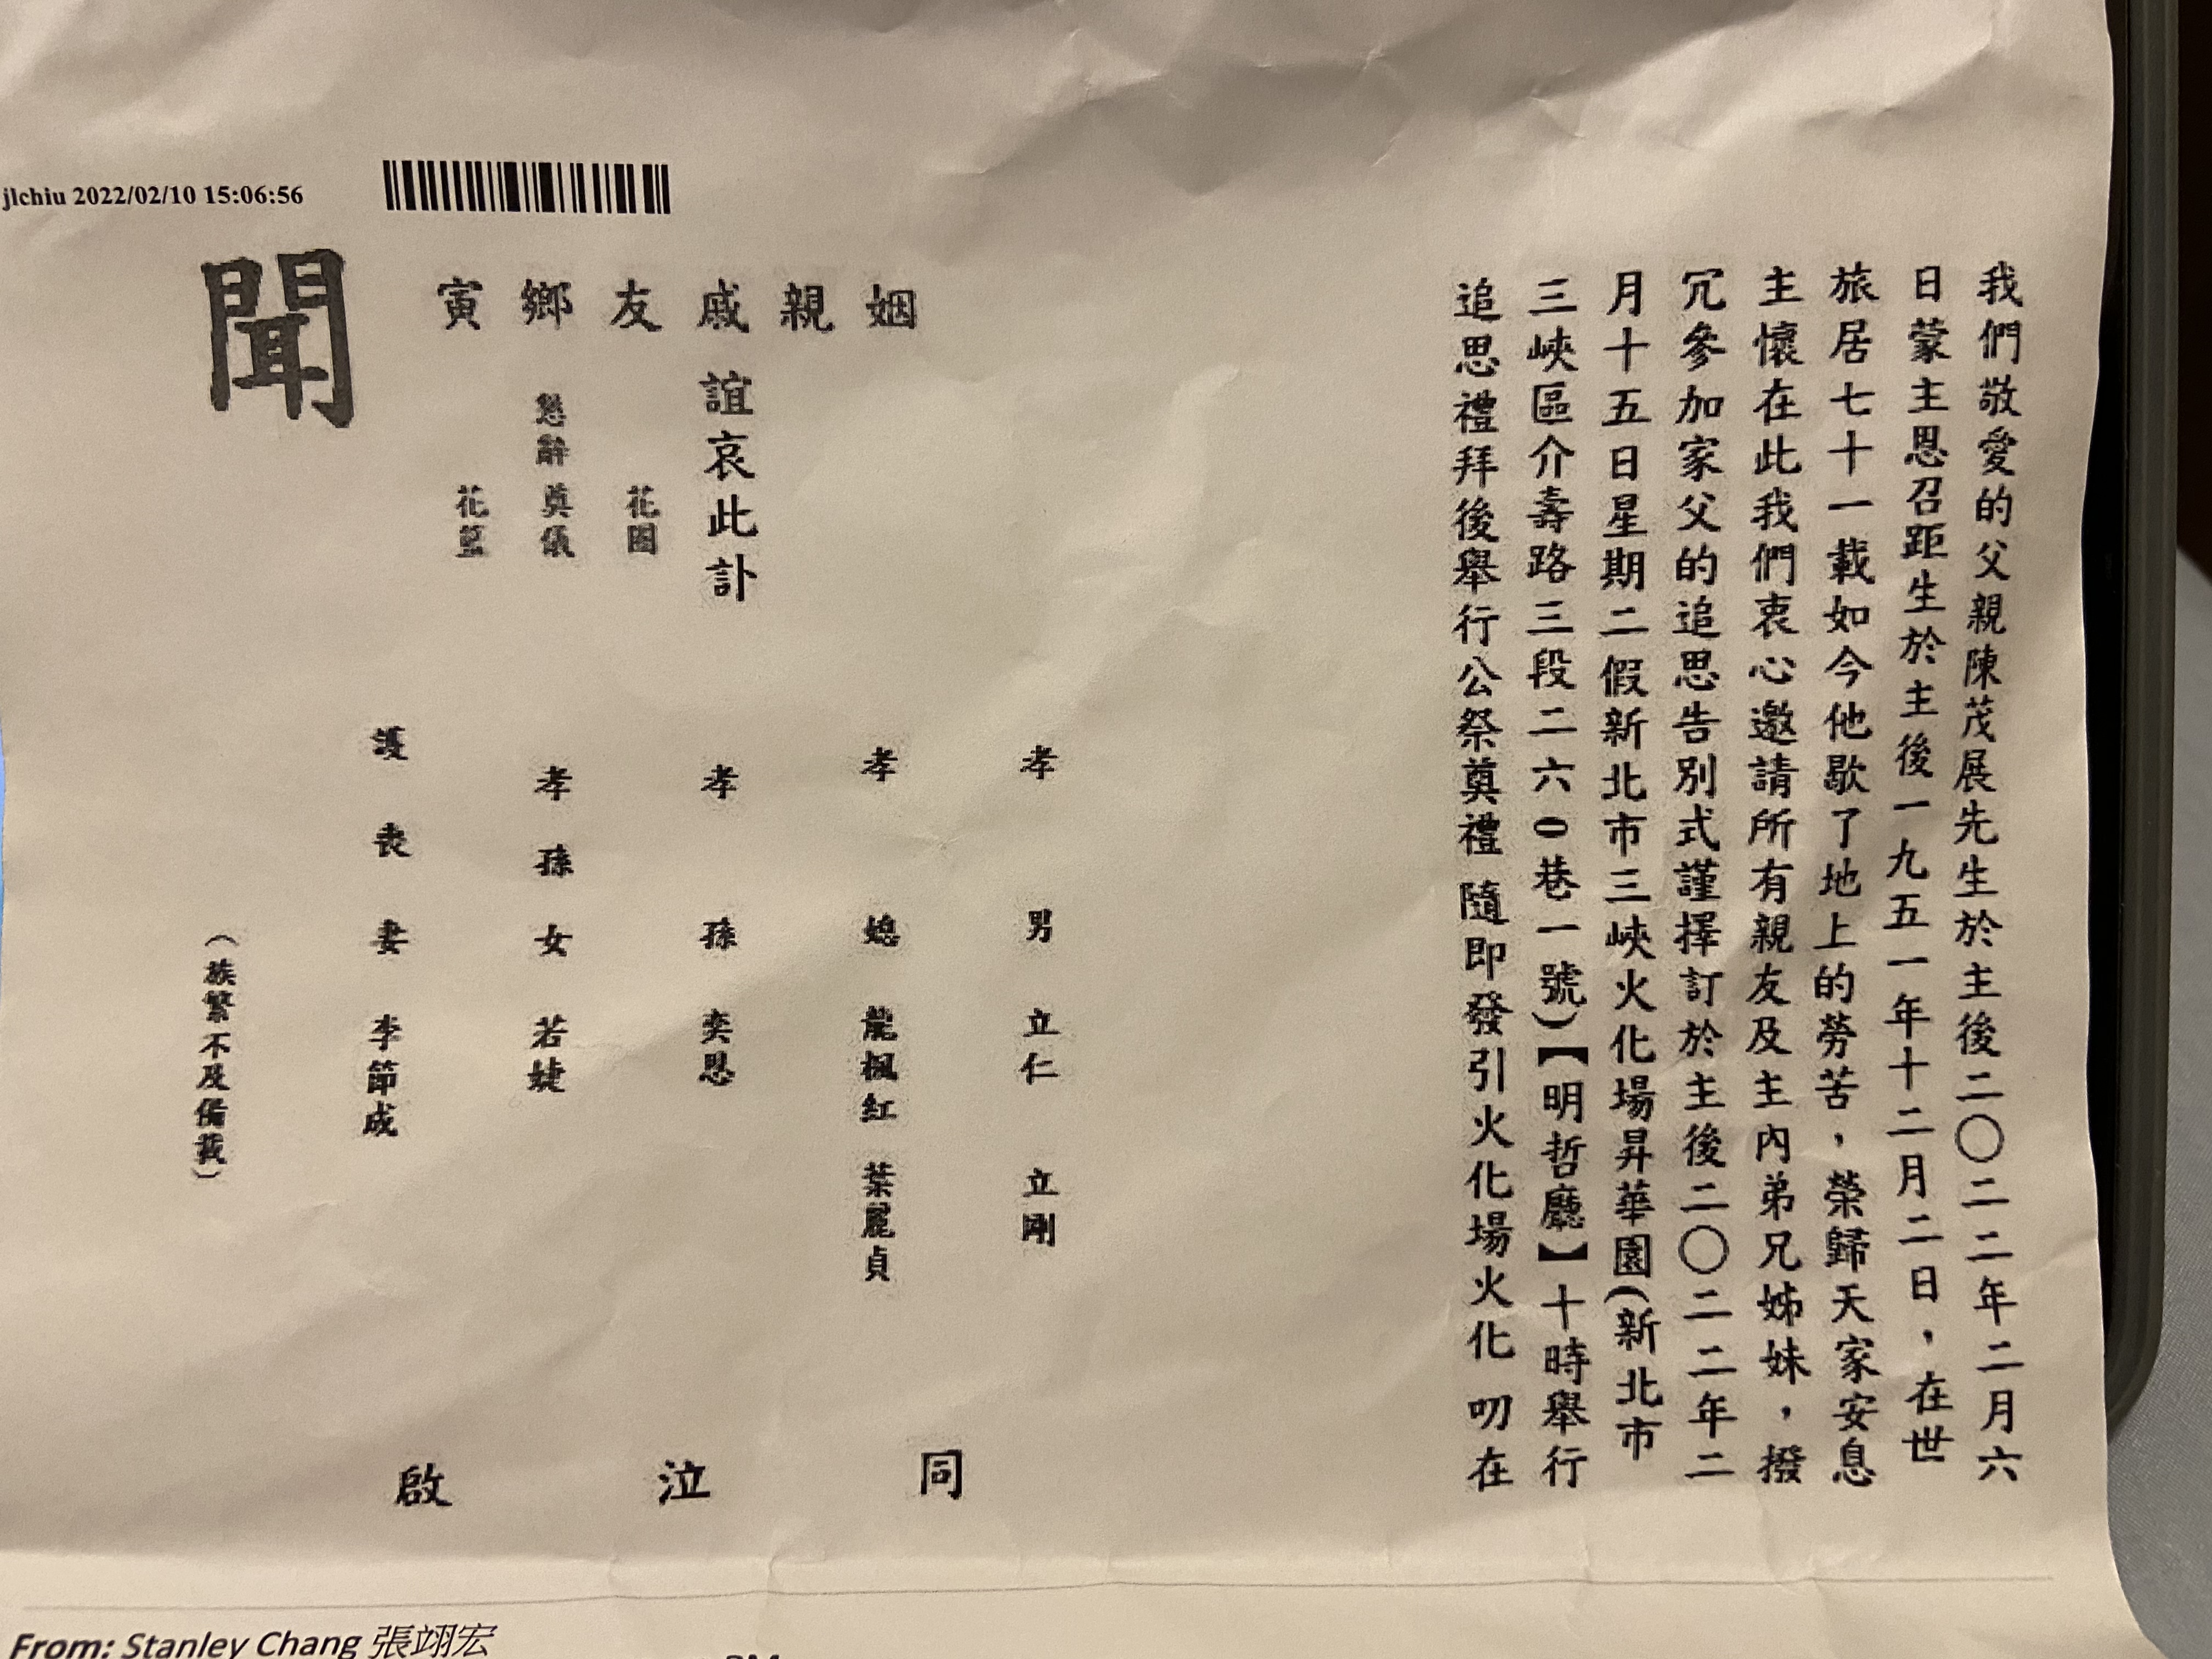 jlchiu 2022/02/10 15:06:56
我們敬愛的父親陳茂展先生於主後二〇二二年二月六
日蒙主恩召距生於主後一九五一年十二月二日，在世
旅居七十一載如今他歇了地上的勞苦，榮歸天家安息
主懷在此我們衷心邀請所有親友及主內弟兄姊妹，撥
冗參加家父的追思告別式謹擇訂於主後二〇二二年二
月十五日星期二假新北市三峽火化場昇華園(新北市
三峽區介壽路三段二六0巷一號)【明哲廳】十時舉行
追思禮拜後舉行公祭奠禮 隨即發引火化場火化 叨在
姻
親
戚
友
鄉
寅
誼哀此訃
聞
懇辭
花圈
奠儀
花籃
孝男 立仁 立剛
孝媳 龍楓紅 葉麗貞
孝孫 奕恩
孝孫女 若婕
護喪妻 李節成
(族繁不及備載)
同泣啟
From: Stanley Chang 張翊宏